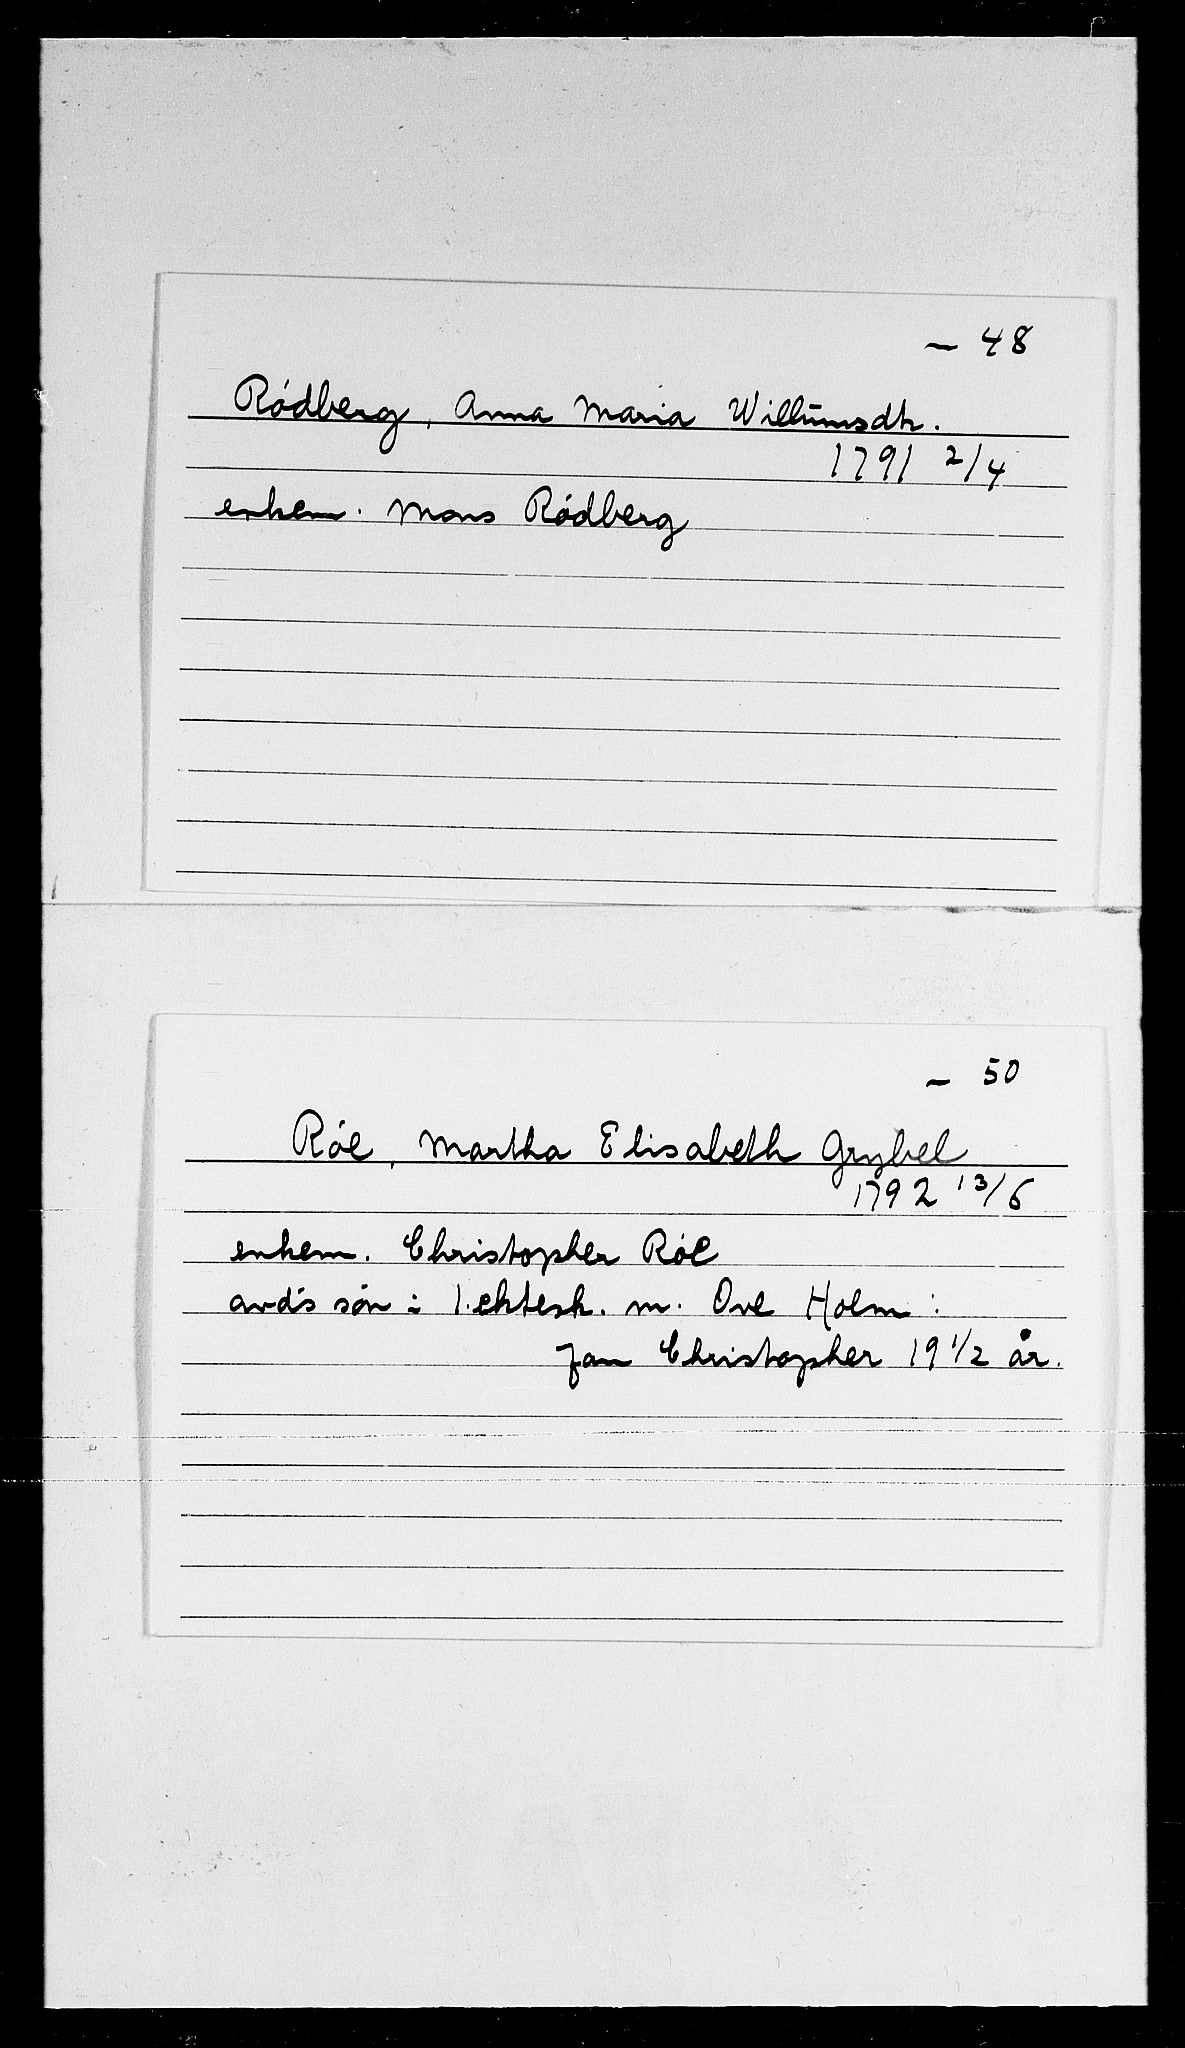 – 48
Rødberg, Anna Maria Willumsdtr.
1791 2/4
enkem. Mons Rødberg
– 50
Røe, Martha Elisabeth Grybel
1792 13/6
enkem. Christopher Røe
avd's søn i 1. ektesk. m. Ove Holm:
Jan Christopher 19 1/2 år.